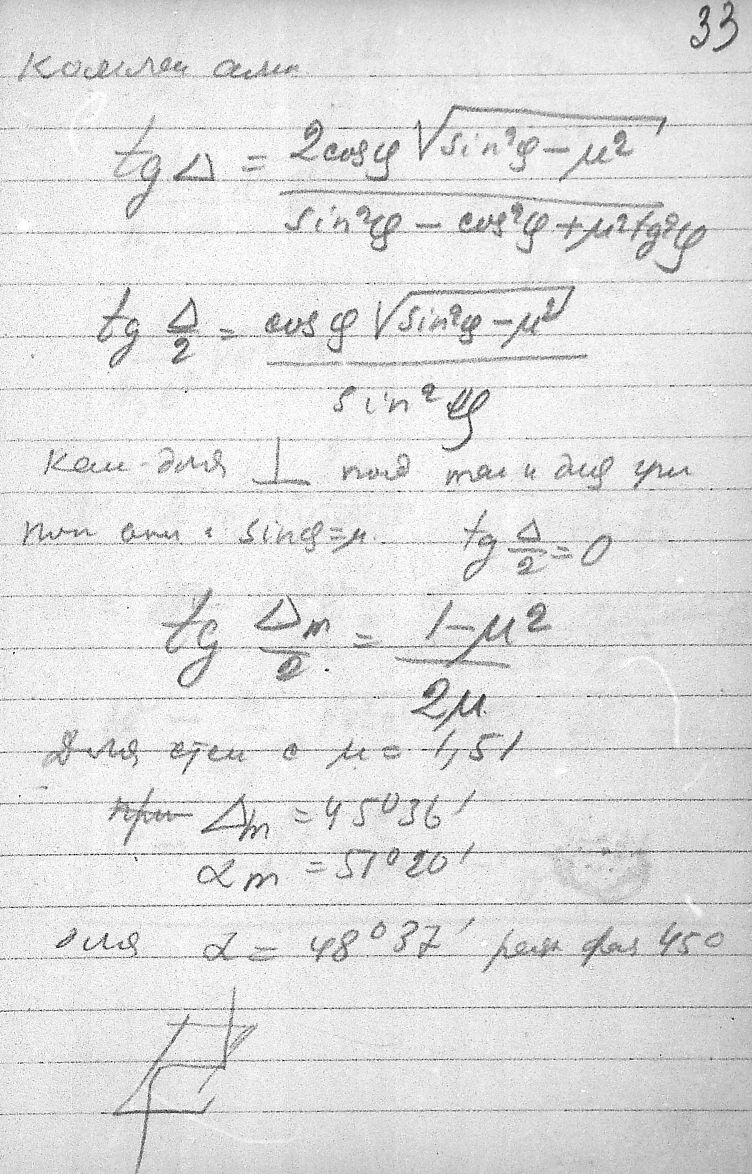 33
tg Δ = 2cosφ √(sin²φ − μ²) / (sin²φ − cos²φ + μ² tg²φ)
tg Δ/2 = cosφ √(sin²φ − μ²) / sin²φ
для ⊥ и
sinφ = μ. tg Δ/2 = 0
tg Δm/2 = (1 − μ²) / 2μ
Для стек с μ = 1,51
при Δm = 45°36′
αm = 51°20′
для α = 48°37′ раз фаз 45°